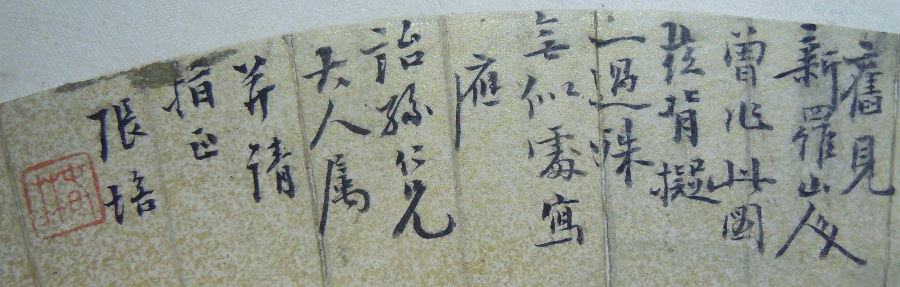 舊見
新羅山人
曾作此圖
茲背擬
一過殊
無似處寫
應
詒孫仁兄
大人属
並請
指正
張培